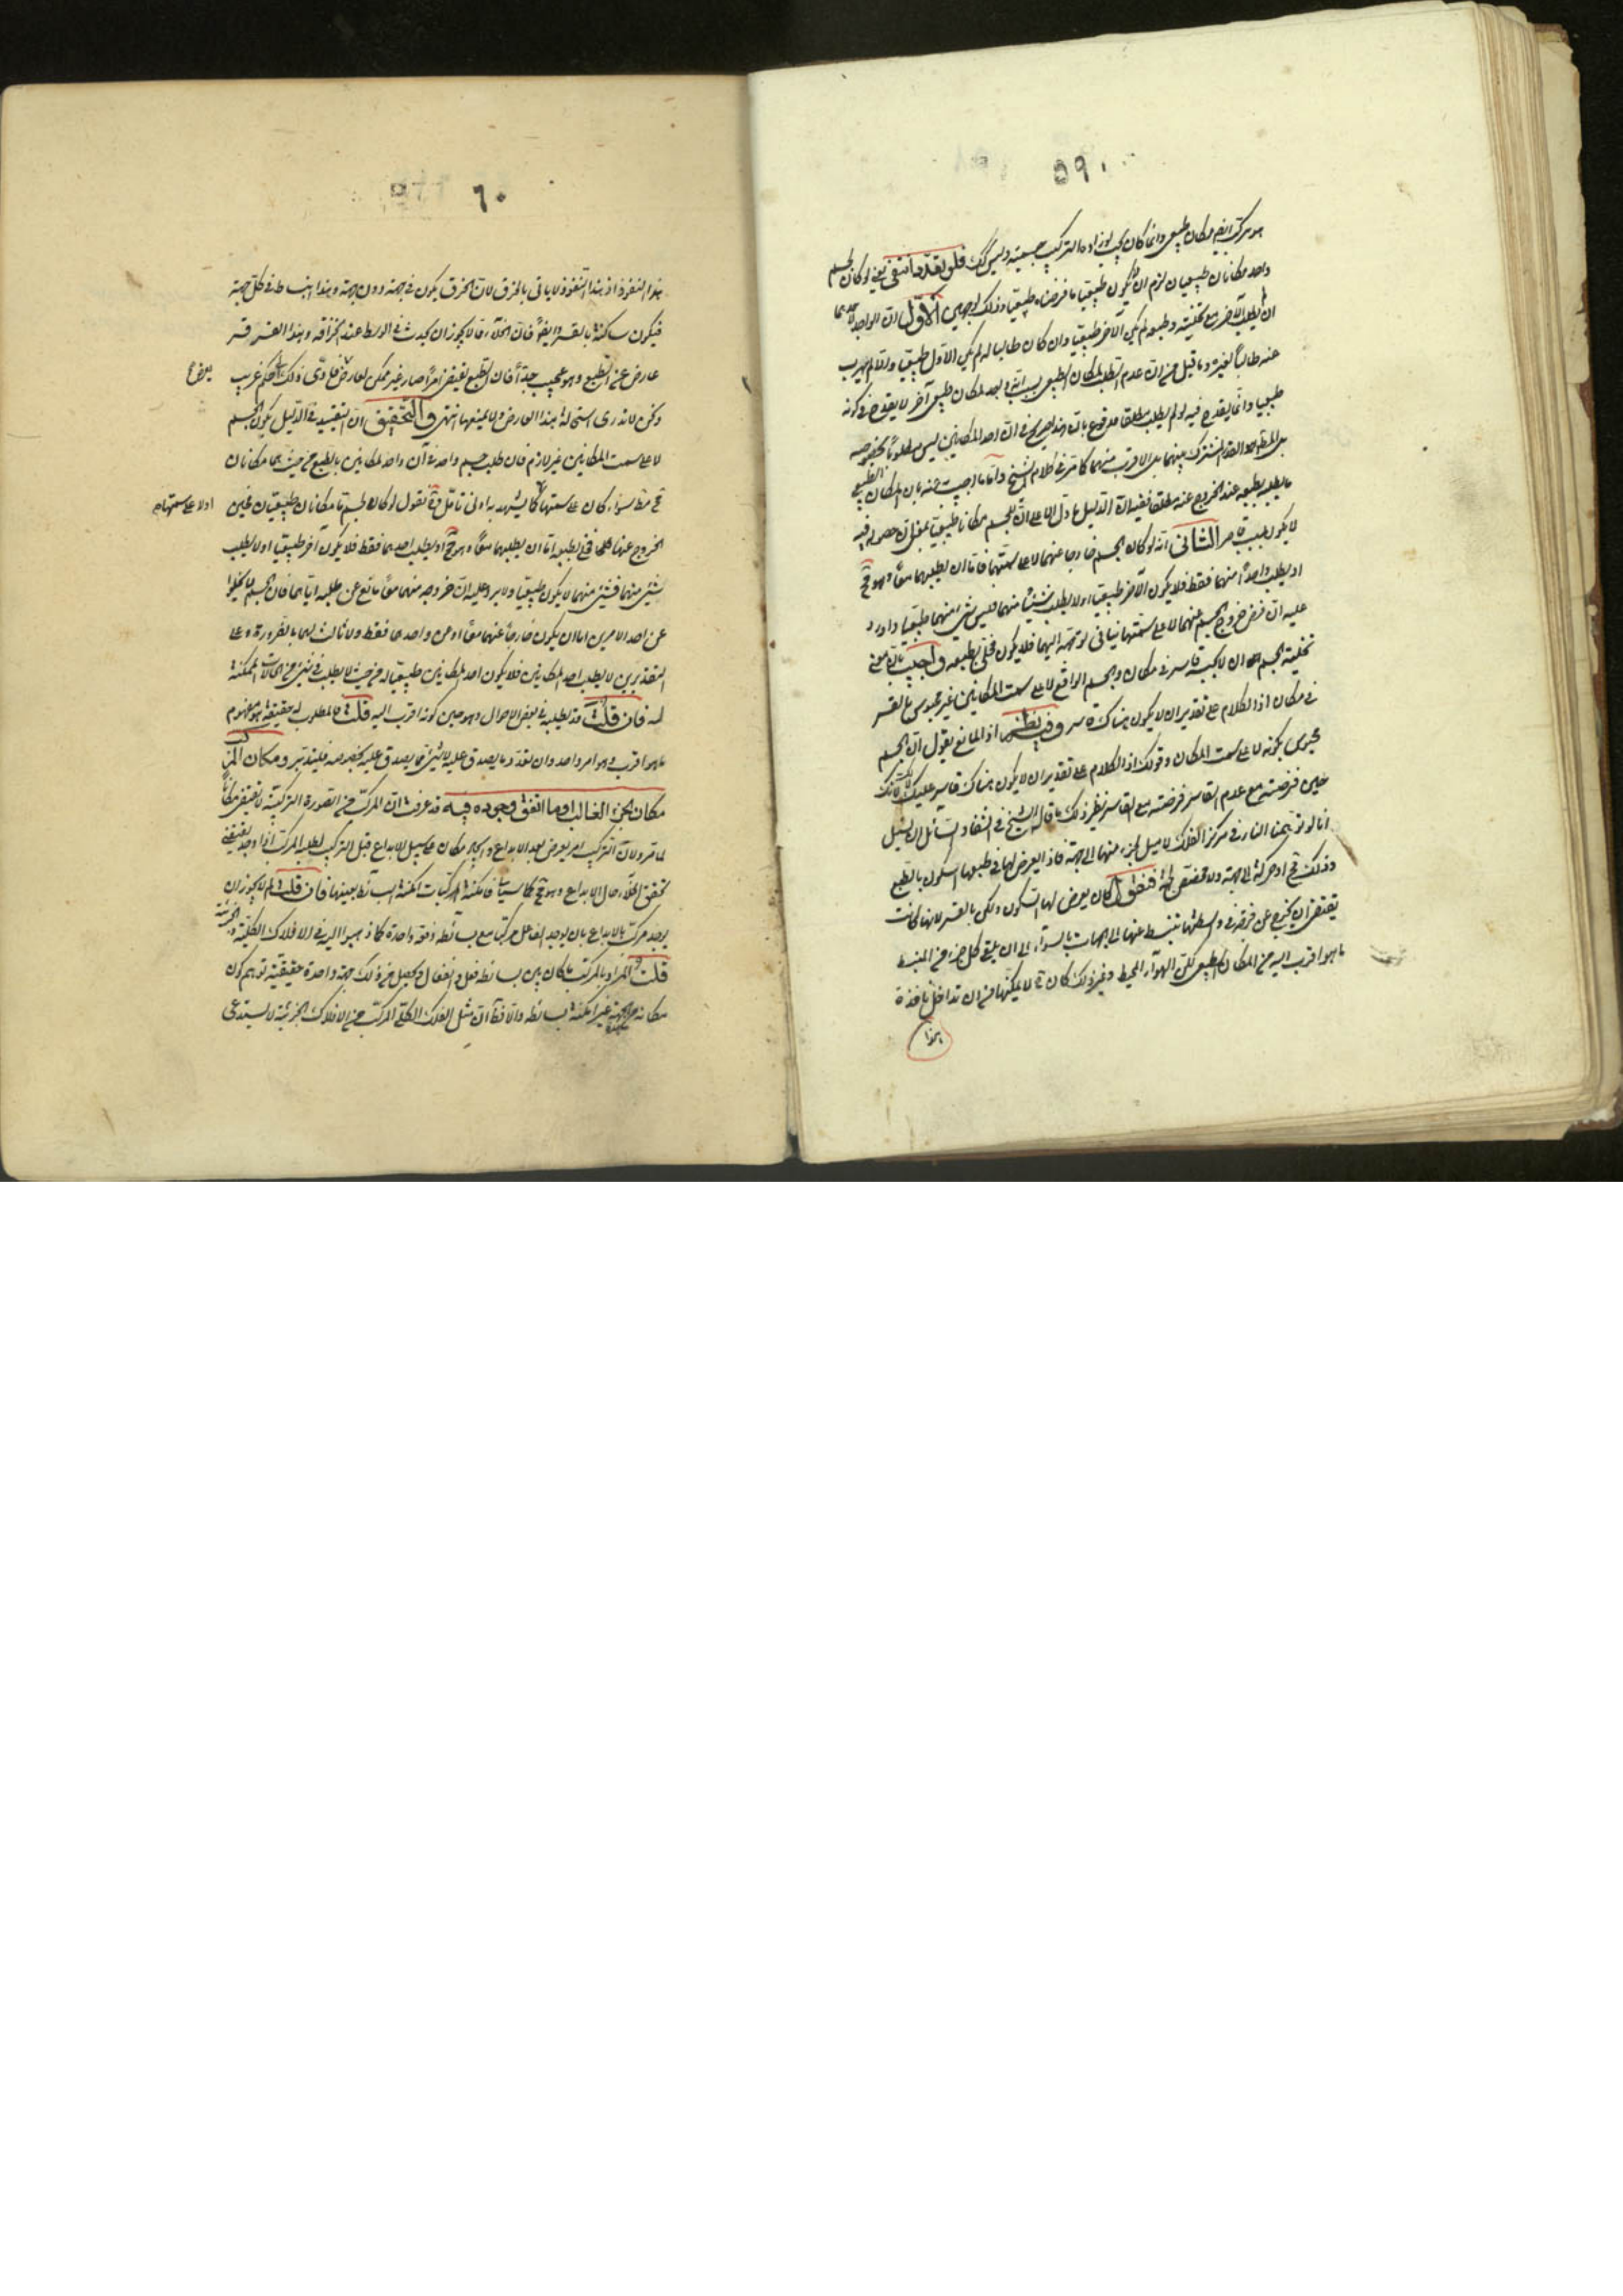 ٥٩
هو مركب ايضا مكان طبيعى وانما كان يجب لو زاد التركيب جسمية وليس كذلك فلو تعدد انتفى يعنى لو كان لجسم
واحد مكانان طبيعيان لزم ان لا يكون طبيعيا ما فرضناه طبيعيا وذلك لوجهين الاول ان الواحد
ان لم يطلب الآخر مع تخليته وطبعه لم يكن الآخر طبيعيا وان كان طالبا له لم يكن الاول طبيعيا والا لم يهرب
عنه طالبا لغيره وما قيل من ان عدم الطلب لمكان الطبيعى بسبب انه وجد لمكان طبيعى آخر لا يقدح فى كونه
طبيعيا وانما يقدح فيه لو لم يطلب مطلقا مدفوع بان هذا يصرح فى ان احد المكانين ليس مطلوبا بخصوصه
بل المطلوب القدر المشترك بينهما بل الاقرب منهما كما مر فى كلام الشيخ واما ما اجيب عنه بان المكان الطبيعى
ما يطلبه بطبعه عند الخروج عنه مطلقا ففيه ان الدليل ما دل الا على ان للجسم مكانا طبيعيا بمعنى ان حصوله فيه
لا يكون بسبب قاسر الثانى انه لو كان الجسم خارجا عنهما لا على سمتهما فاما ان يطلبهما معا وهو مح
او يطلب واحدا منهما فقط فلا يكون الآخر طبيعيا او لا يطلب شيئا منهما فليس شئ منهما طبيعيا واورد
عليه ان فرض خروج الجسم عنهما لا على سمتهما ينافى توجهه اليهما فلا يكون مخلى بطبعه واجيب بان معنى
تخلية الجسم ان لا يحبسه قاسر فى مكان والجسم الواقع لا على سمت المكانين غير محبوس بالقسر
فى مكان اذ الكلام على تقدير ان لا يكون هناك قاسر وفيه نظر اذ المانع يقول ان الجسم
محبوس بكونه لا على سمت المكان وقولك اذ الكلام على تقدير ان لا يكون هناك قاسر عليك لا لك لانك
حين فرضته مع عدم القاسر فرضته مع القاسر نظير ذلك ما قاله الشيخ فى الشفاء والسائل ان يسئل
انا لو توهمنا النار فى مركز الفلك لا ميل لجزء منها الى جهة فاذ العرض لها فى طبعها السكون بالطبع
وذلك مح او حركة الى جهة ولا مخصص لجهة فنقول كان يعرض لها السكون ولكن بالقسر لانها كانت
يقتضى ان يخرج عن فرجة فى وسطها ينبسط عنها الى الجهات بالسواء الى ان يلقى كل جزء من المنبسط
ما هو اقرب اليه من المكان الطبيعى لكن الهواء المحيط وغير ذلك كان مما لا يمكنها من ان تداخل نافذة
هذا
٦٠
هذا النفوذ اذ هذا النفوذ لا ياتى بالخرق لان الخرق يكون فى جهة دون جهة وهذا انبساط فى كل جهة
فيكون ساكنة بالقسر وايضا فان الخلاء مما لا يجوز ان يحدث فى الوسط عند انخراقه وهذا القسر قسر
عارض عن الطبع وهو عجيب جدا فان الطبع يقتضى امرا صار غير ممكن لعارض فادى ذلك الى حكم غريب
ونحن لا ندرى استحالة هذا العارض ولا يمنعها انتهى والتحقيق ان التقييد فى الدليل بكون الجسم
لا على سمت المكانين غير لازم فان طلب جسم واحد فى آن واحد لمكانين بالطبع من حيث هما مكانان
مح مط سواء كان على سمتهما اولا على سمتهما كما يشهد به ادنى تامل فح نقول لو كان لجسم ما مكانان طبيعيان فحين
الخروج عنهما كليهما فح بطبعه اما ان يطلبهما معا وهو مح او يطلب احدهما فقط فلا يكون آخر طبيعيا او لا يطلب
شئ منهما فشئ منهما لا يكون طبيعيا ولا يرد عليه ان خروجه منهما معا مانع عن طلبه اياهما فان الجسم لا يخلوا
عن احد الامرين اما ان يكون خارجا عنهما معا او عن واحدهما فقط ولا ثالث لهما بالضرورة وعلى
التقديرين لا يطلب احد المكانين فلا يكون احد المكانين طبيعيا له من حيث لا يطلب فى شئ من الحالات الممكنة
له فان قلت قد يطلبه فى بعض الاحوال وهو حين كونه اقرب اليه قلت فالمطلوب له حقيقة هو مفهوم
ما هو اقرب وهو امر واحد وان تعدد ما يصدق عليه لا شئ مما يصدق عليه بخصوصه فليتدبر ومكان المركب
مكان الجزء الغالب او ما اتفق وجوده فيه قد عرفت ان المركب من الصورة التركيبية لا يقتضى مكانا
لما مر ولان التركيب امر يعرض بعد الابداع وايجاد مكان على سبيل الابداع قبل التركيب لطلبه المركب اذا وجد يقتضى
تحقق الخلاء حال الابداع وهو مح كما سياتى فامكنة المركبات امكنة البسائط بعينها فان قلت لم لا يجوز ان
يوجد مركب بالابداع بان يوجد الفاعل مركبا مع بسائطه دفعة واحدة كما ذهبوا اليه فى الافلاك الكلية والجزئية
قلت المراد بالمركب ما كان بين بسائطه فعل وانفعال ويحصل من ذلك جهة واحدة حقيقية توهم كون
مكانه من جهة غير امكنة بسائطه واتفاقا ان مثل الفلك الكلى المركب من الافلاك الجزئية لا يستدعى